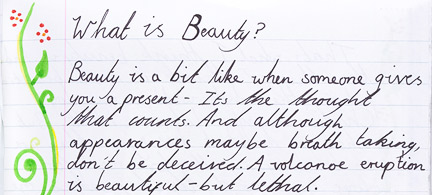 What is Beauty?
Beauty is a bit like when someone gives
you a present - Its the thought
that counts. And although
appearances maybe breath taking,
don't be deceived. A volcanoe eruption
is beautiful - but lethal.